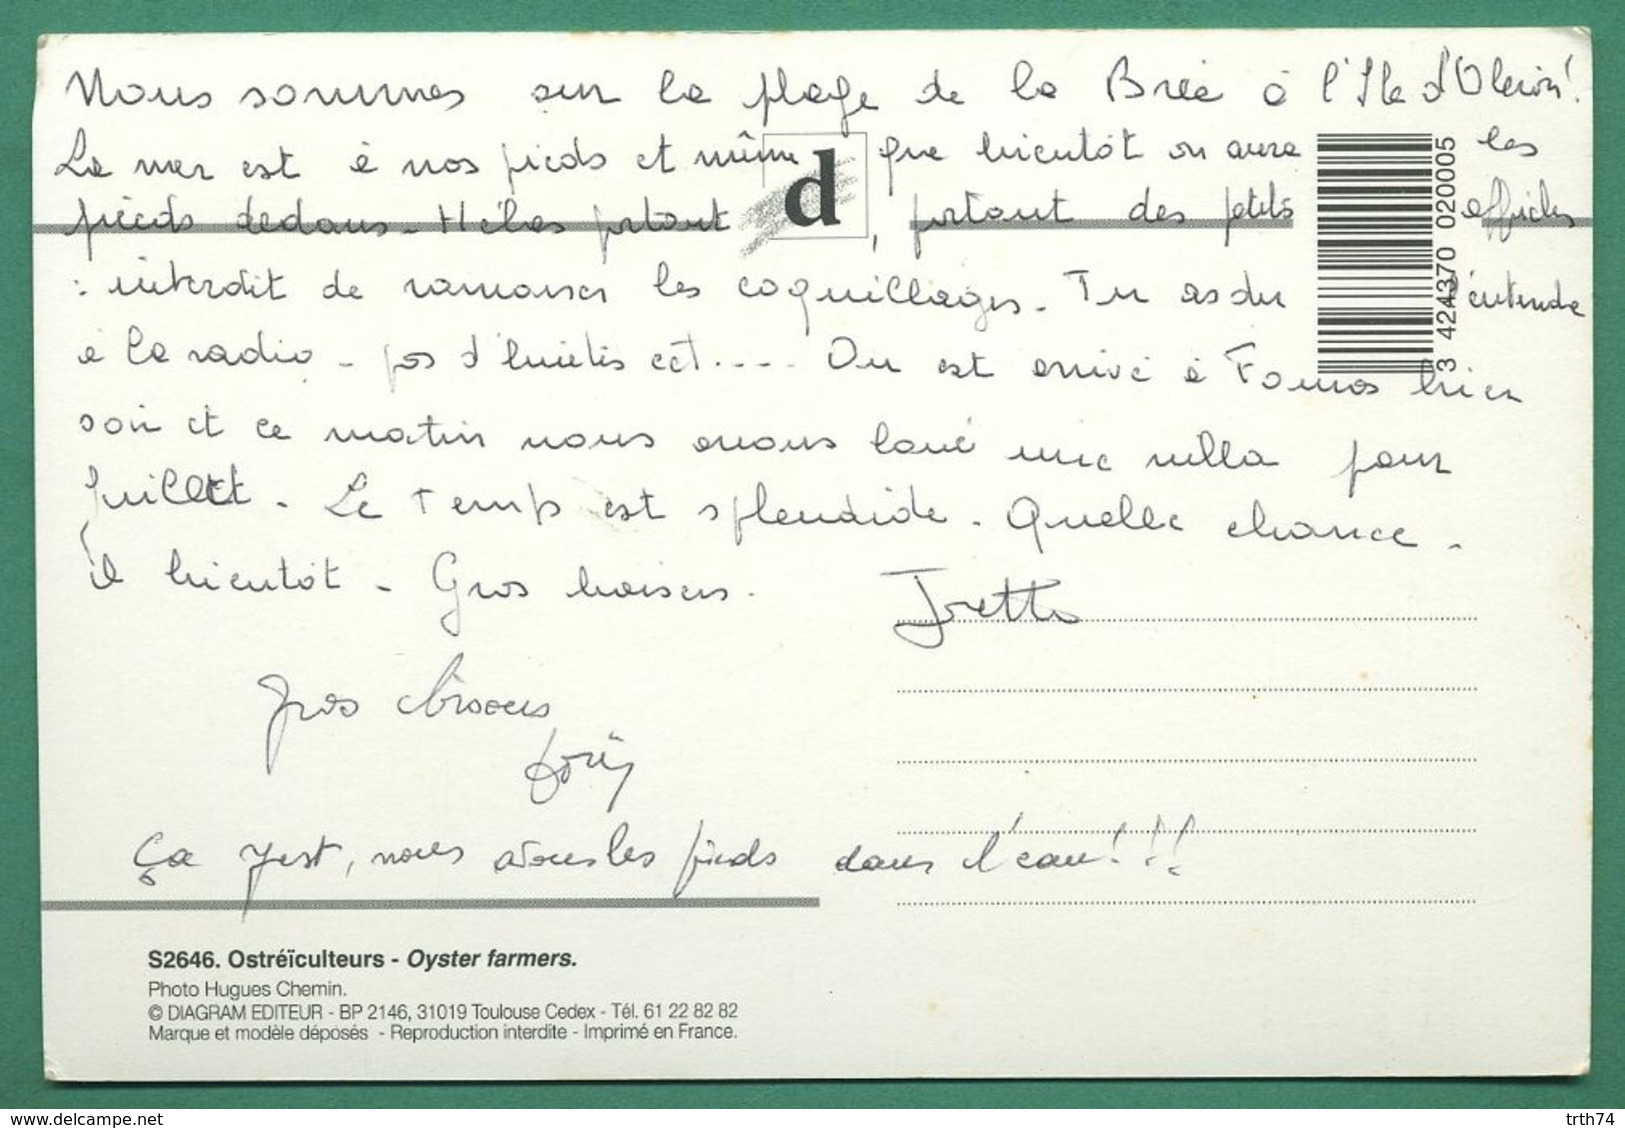 Nous sommes sur la plage de la Brée à l'Ile d'Oleron!
La mer est à nos pieds et même que bientôt on aura les
pieds dedans. Hélas partout, partout des petits affiches
: interdit de ramasser les coquillages. Tu as du l'entendre
à la radio - pas d'huitres ect.... On est arrivé à Fouras hier
soir et ce matin nous avons loué une villa pour
Juillet. Le Temps est splendide. Quelle chance.
A bientôt - Gros baisers.
Gros bisous
Ça yest, nous avons les pieds dans l'eau!!!
d
3 424370 020005
S2646. Ostréïculteurs - Oyster farmers.
Photo Hugues Chemin.
© DIAGRAM EDITEUR - BP 2146, 31019 Toulouse Cedex - Tél. 61 22 82 82
Marque et modèle déposés - Reproduction interdite - Imprimé en France.
delcampe.net
trth74